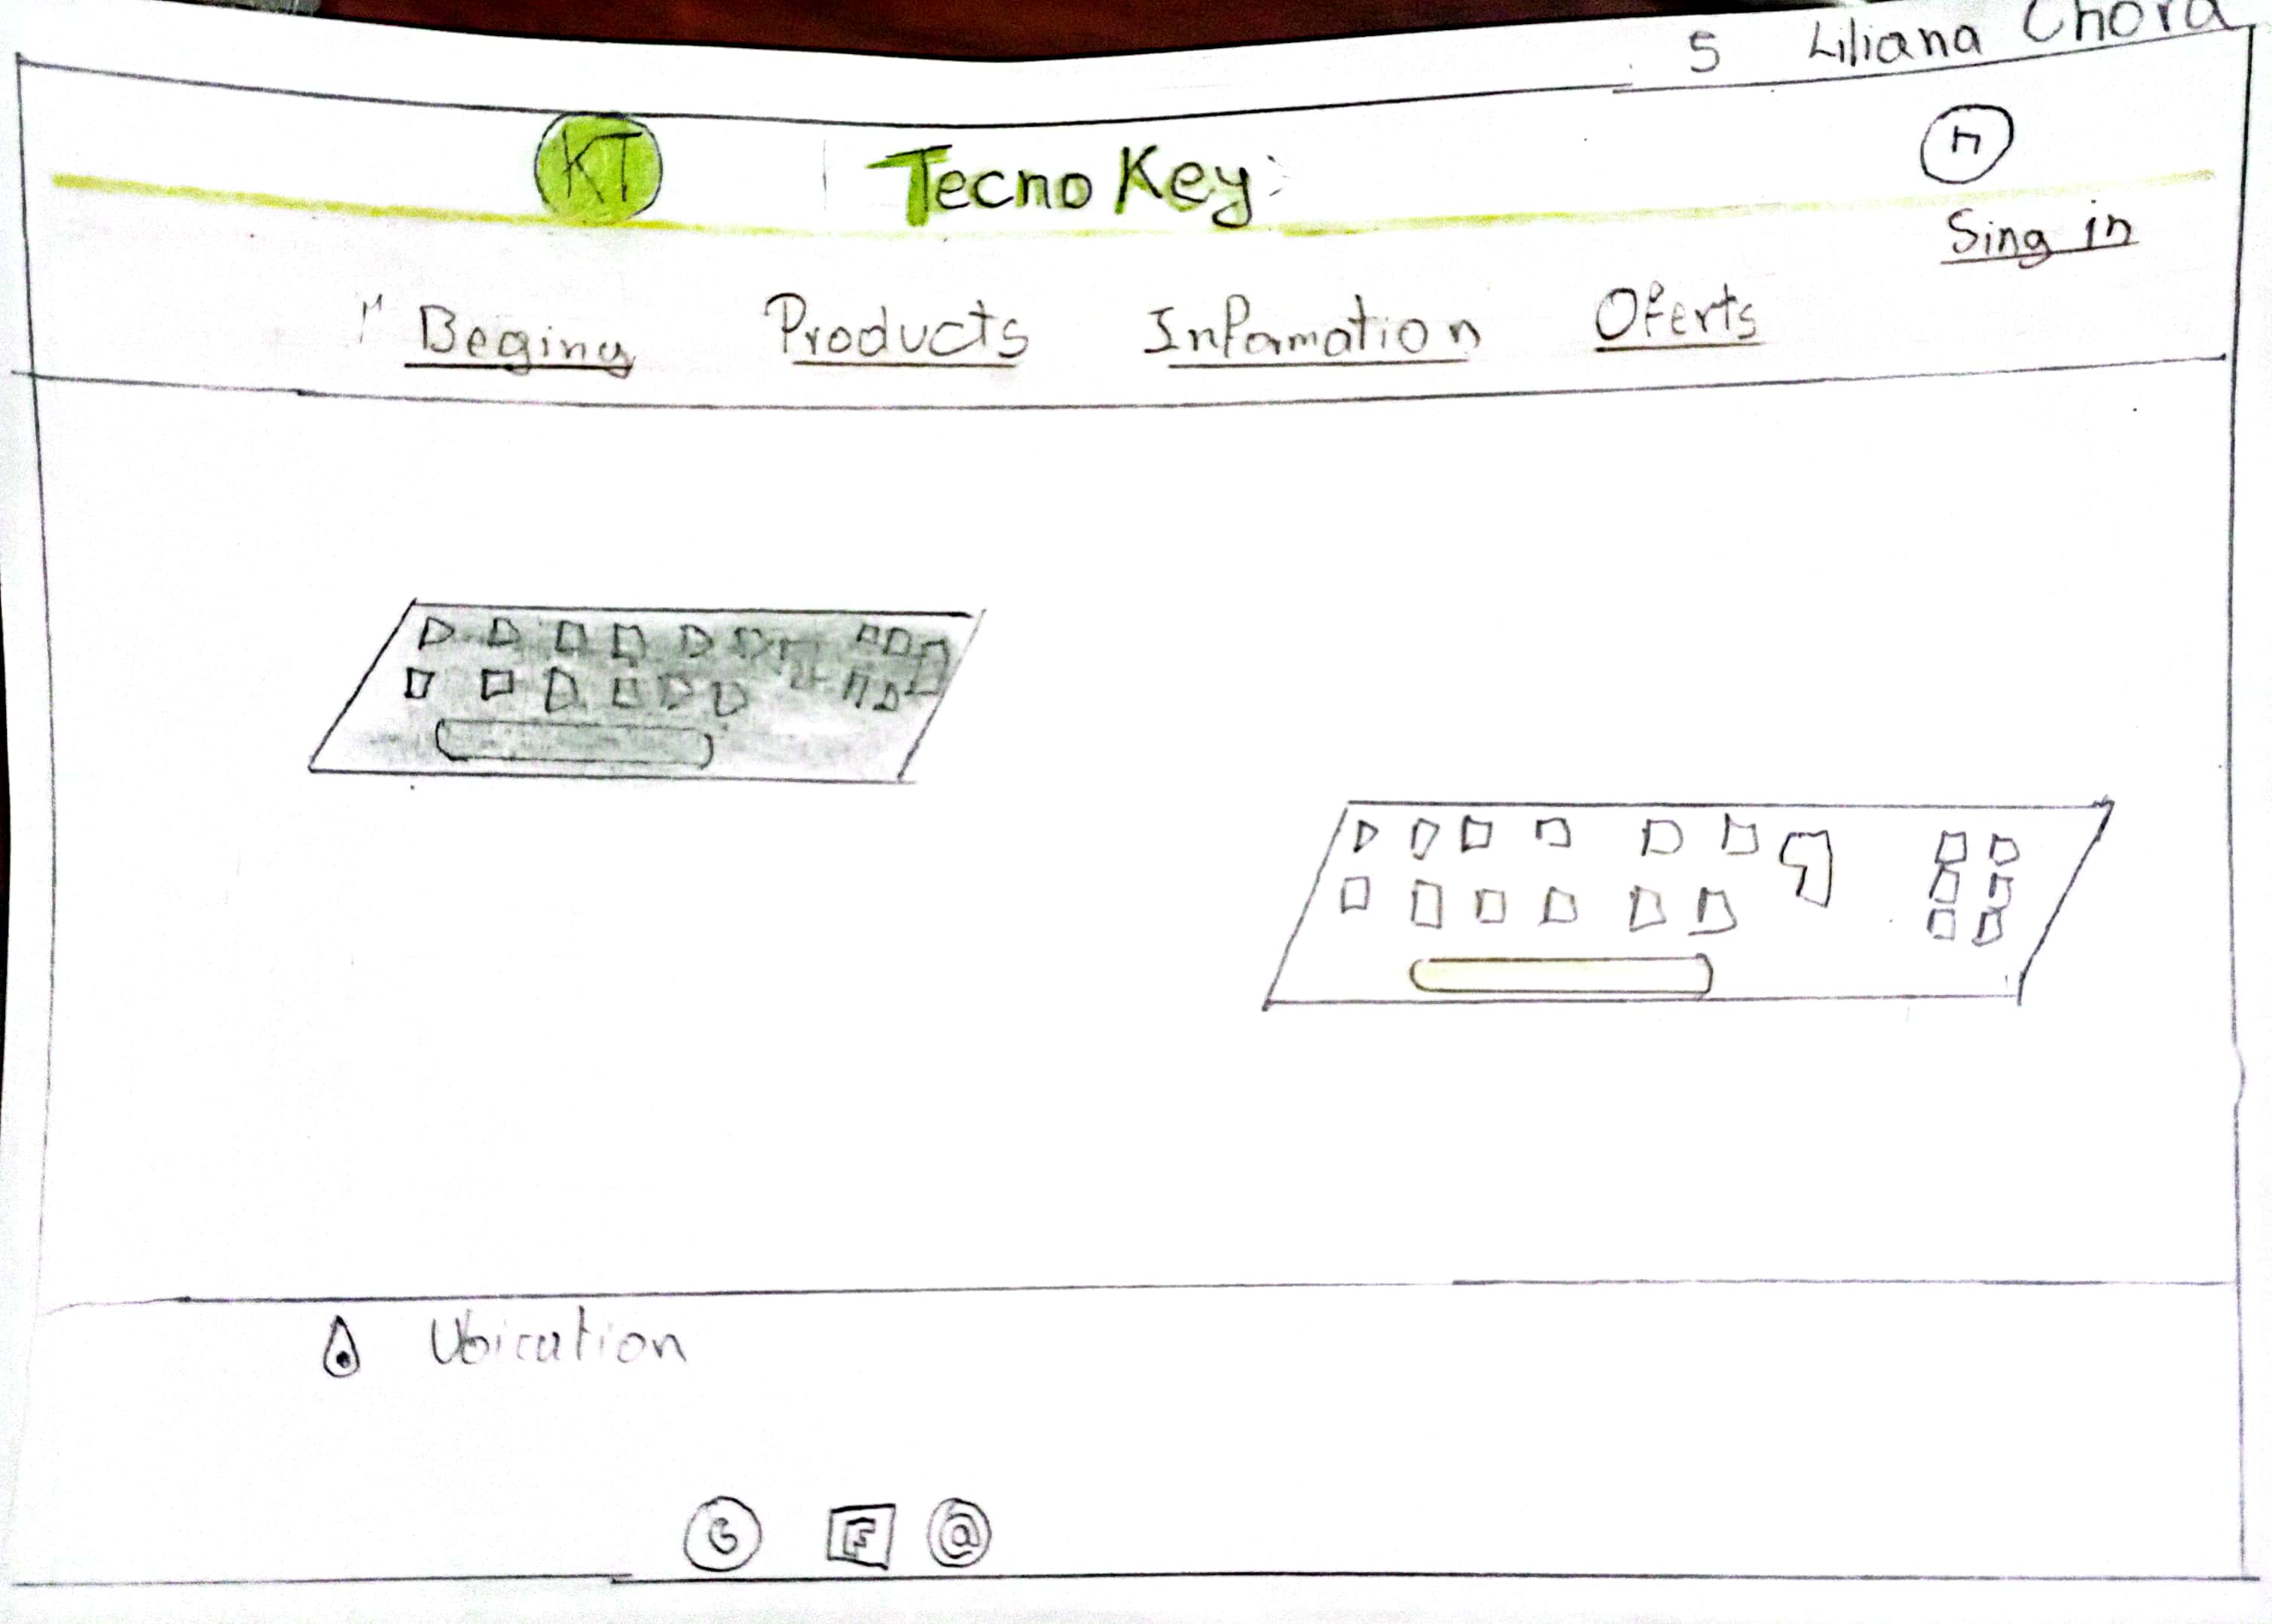 5 Liliana Chora
KT Tecno Key
Sing in
Beging Products Infamation Oferts
Ubication
F @